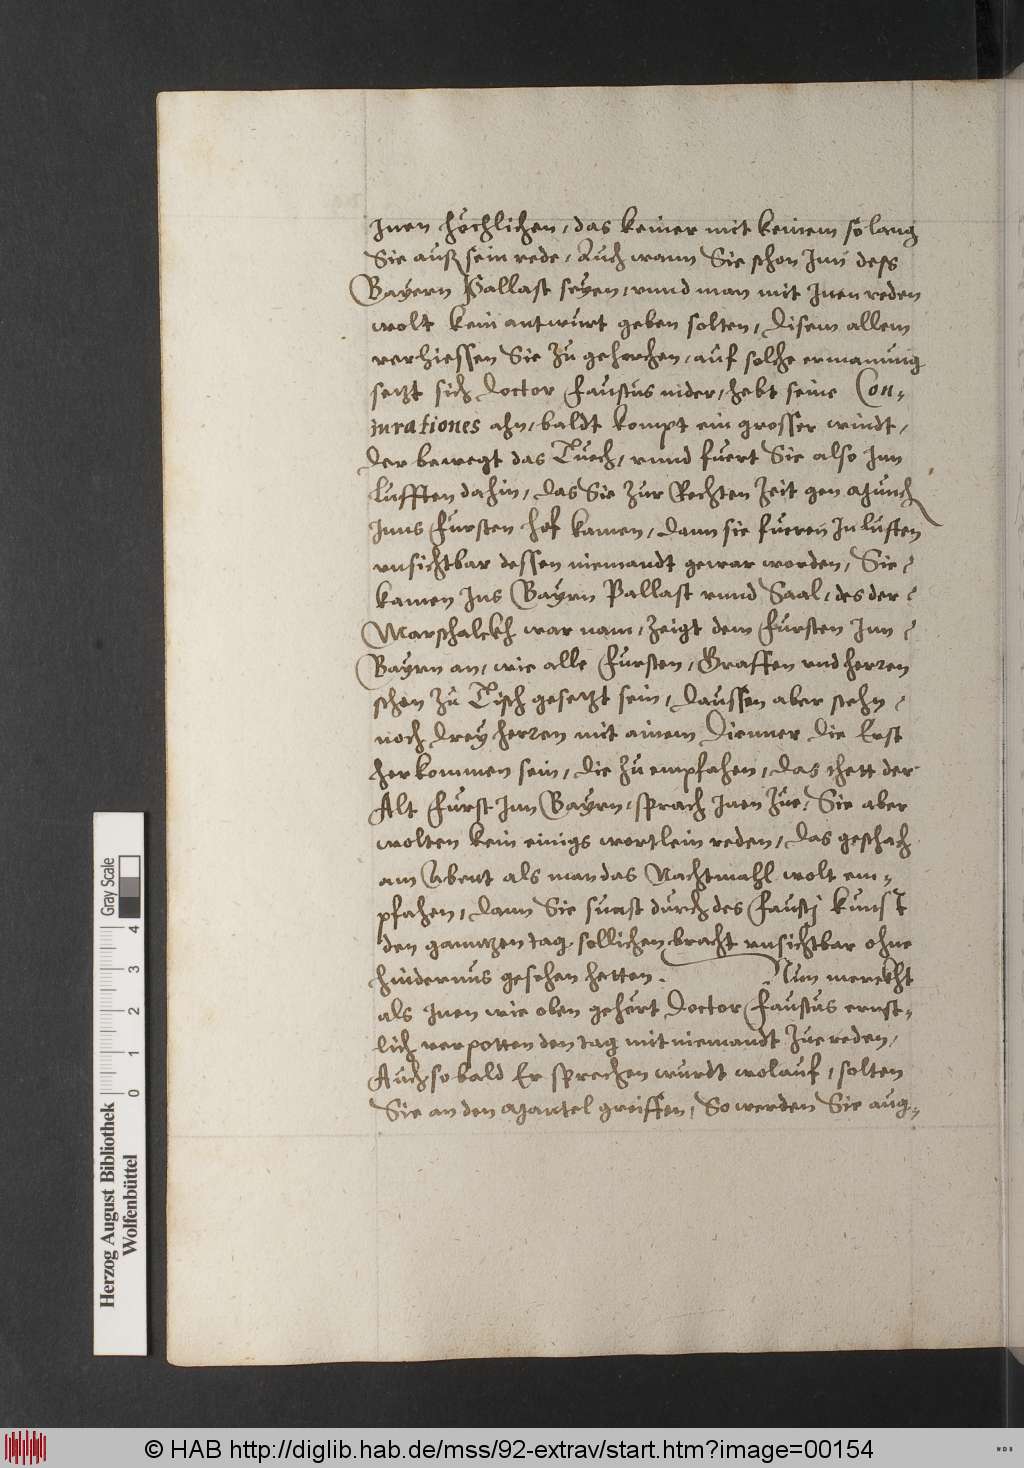 Inen höchlichen, das keiner mit keinem so lang
Sie auß sein rede, Auch wann Sie schon Inn dess
Bayern Pallast seyen, vnnd man mit Inen reden
wolt kein antwurt geben solten, Disem allem
verhiessen Sie zu gehorchen, auf solche ermanung
setzt sich Doctor Faustus nider, hebt seine Con-
iurationes ahn, baldt kompt ein grosser windt,
der bewegt das Tuech, vnnd fuert Sie also Inn
Lufften dahin, das Sie zur Rechten Zeit gen Münch
Inns Fursten hof kamen, dann sie fueren In luften
vnsichtbar dessen niemandt gewar worden, Sie
kamen Ins Bayrn Pallast vnnd Saal, des der
Marschalckh war nam, zeigt dem Fursten Inn
Bayrn an, wie alle Fursten, Graffen vnd herren
schon zu Tisch gesetzt sein, daussen aber stehn
noch drey herren mit ainem Dienner die Erst
herkommen sein, die zu empfahen, das thett der
Alt Fürst Inn Bayrn, sprach Inen zue, Sie aber
wolten kein einigs wortlein reden, das geschach
am Abent als man das Nachtmahl wolt em-
pfahen, dann Sie sunst durch des Faustj kunst
den ganntzen tag, sollichen bracht vnsichtbar ohne
hindernus gesehen hetten. Nun merckht
als Inen wie oben gehört Doctor Faustus ernst-
lich verpotten den tag mit niemandt zue reden,
Auch so bald Er sprechen wurdt wolauf, solten
Sie an den Mantel greiffen, So werden Sie aug-
Herzog August Bibliothek
Wolfenbüttel
0 1 2 3 4
Gray Scale
© HAB http://diglib.hab.de/mss/92-extrav/start.htm?image=00154
WDB